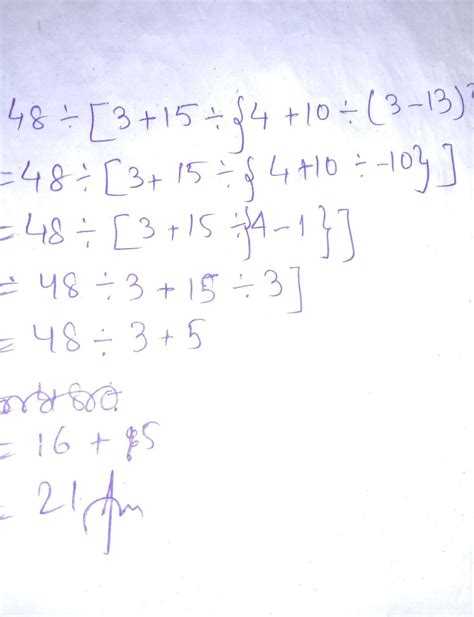 48 ÷ [3 + 15 ÷ {4 + 10 ÷ (3 - 13)
= 48 ÷ [3 + 15 ÷ { 4 + 10 ÷ -10}]
= 48 ÷ [3 + 15 ÷ {4 - 1}]
= 48 ÷ 3 + 15 ÷ 3]
= 48 ÷ 3 + 5
= 16 + 5
= 21 Am